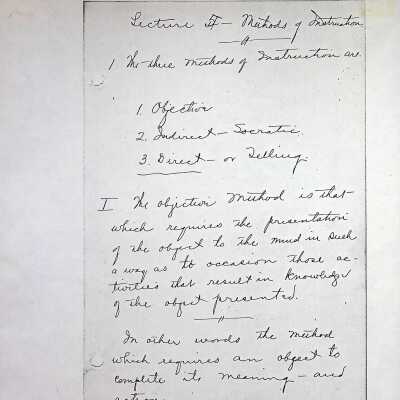 Lecture IV — Methods of Instruction
1 The three Methods of Instruction are.
1. Objective
2. Indirect — Socratic.
3. Direct — or Telling.
I The objective Method is that
which requires the presentation
of the object to the mind in such
a way as to occasion those ac-
tivities that result in Knowledge
of the object presented.
In other words the Method
which requires an object to
complete its meaning — and